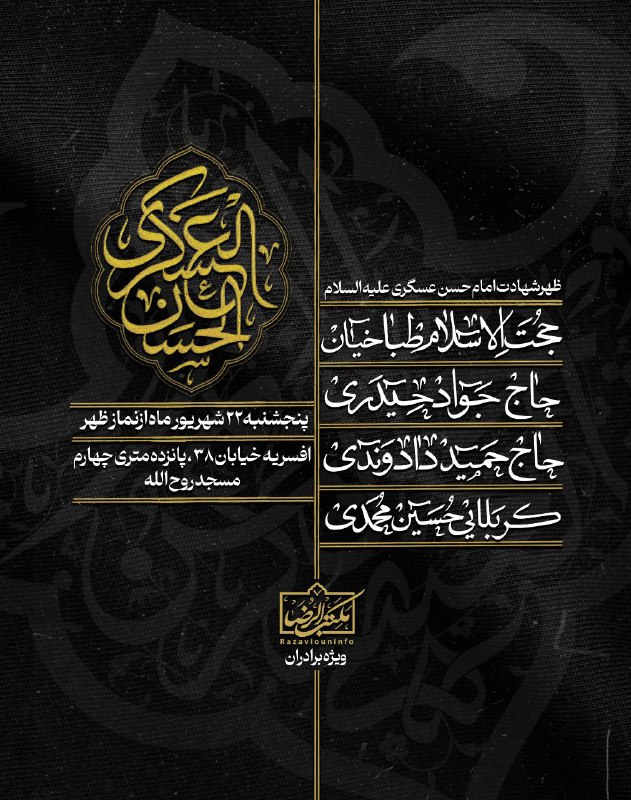 ظهر شهادت امام حسن عسگری علیه السلام
حجت الاسلام طباخیان
حاج جواد حیدری
حاج حمید دادوندی
کربلایی حسین محمدی
العسکری
الحسن
پنجشنبه ۲۲ شهریور ماه از نماز ظهر
افسریه خیابان ۳۸، پانزده متری چهارم
مسجد روح الله
مکتب الرضا
RazaviounInfo
ویژه برادران